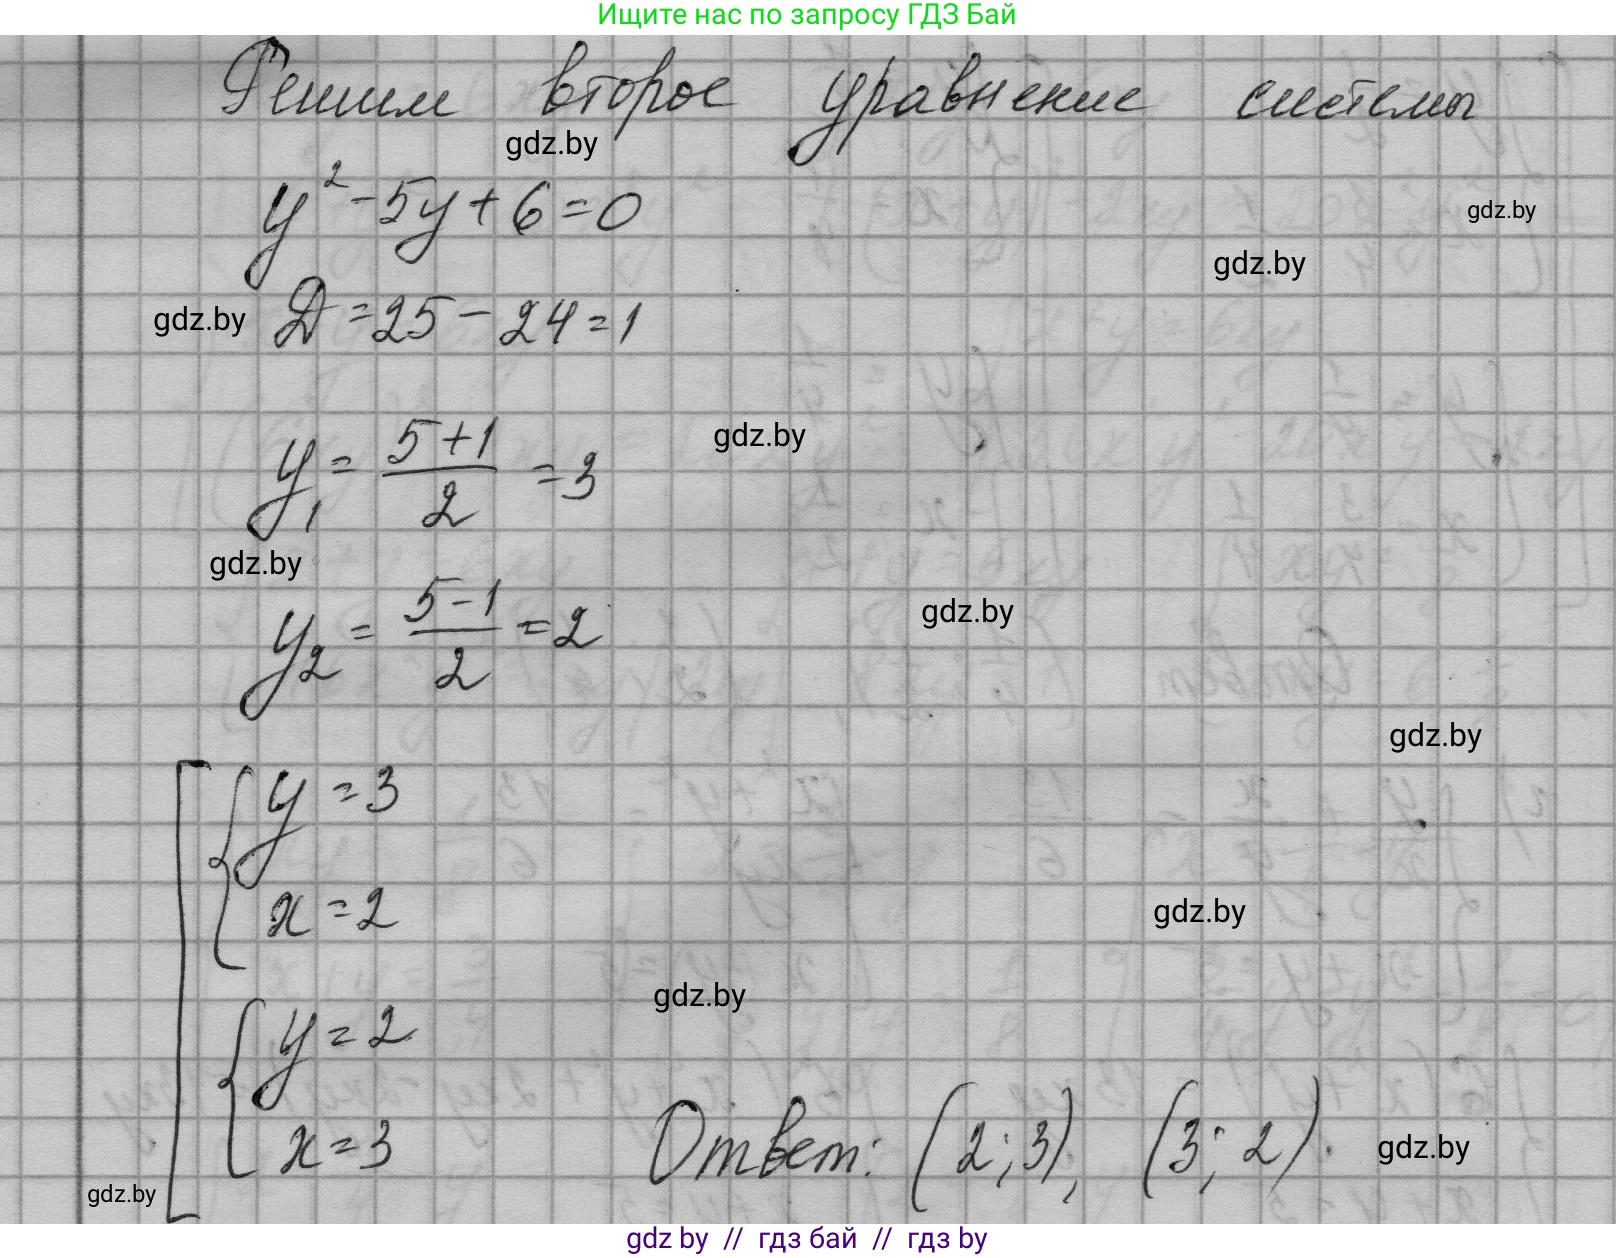 Ищите нас по запросу ГДЗ Бай
Решим второе уравнение системы
gdz.by
y² - 5y + 6 = 0
gdz.by
gdz.by
gdz.by
Д = 25 - 24 = 1
y₁ = (5+1)/2 = 3
gdz.by
gdz.by
y₂ = (5-1)/2 = 2
gdz.by
gdz.by
y = 3
x = 2
gdz.by
gdz.by
y = 2
x = 3
Ответ: (2; 3), (3; 2).
gdz.by
gdz.by
gdz by // гдз бай // гдз by